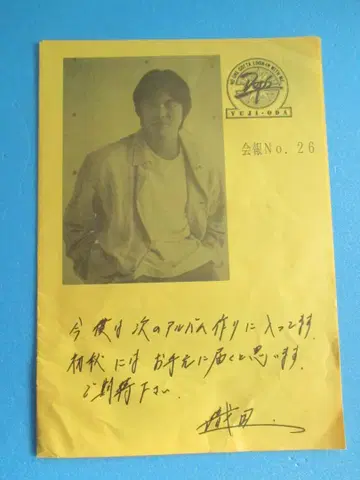 YUJI・ODA
会報No. 26
今僕は次のアルバム作りに入ってます
初秋にはお手元に届くと思います
ご期待下さい
織田